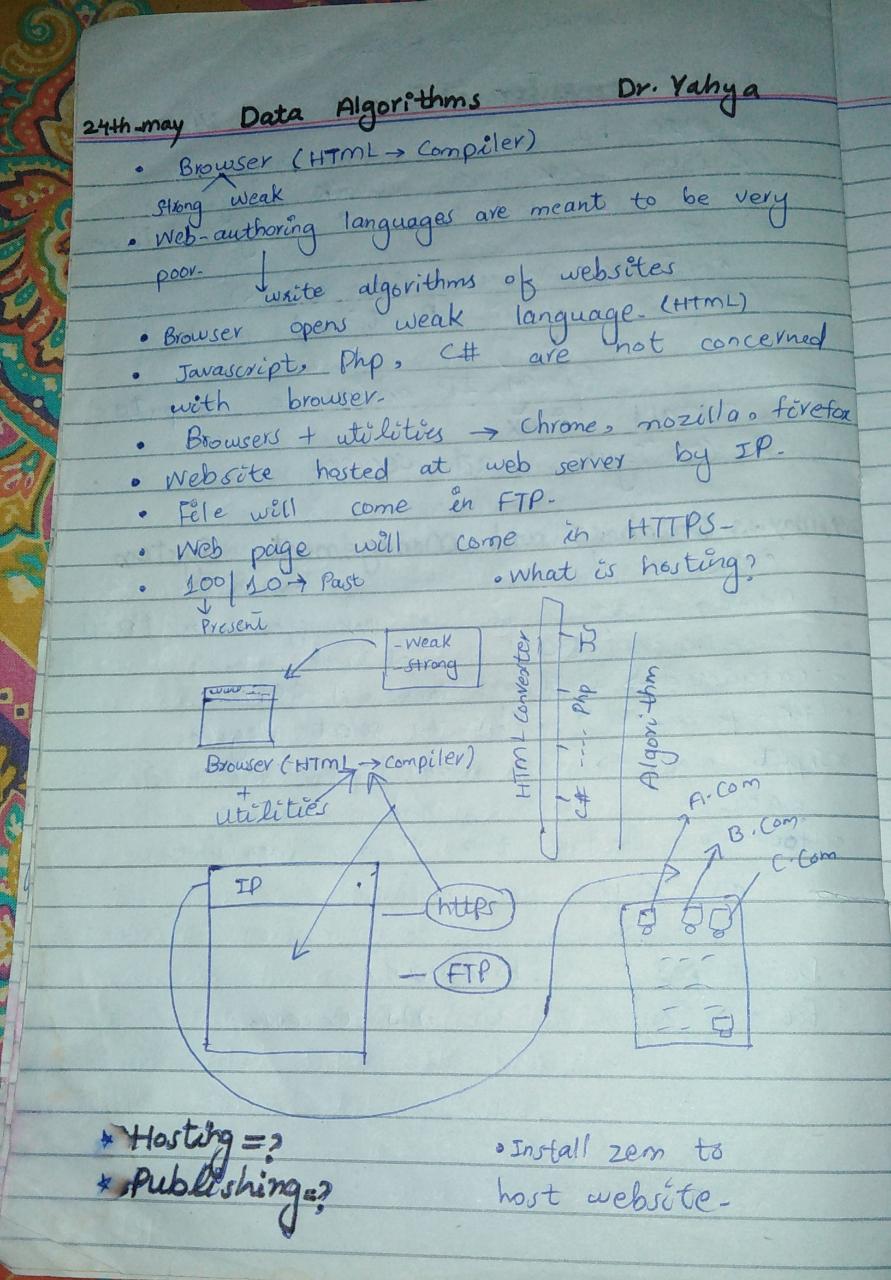 24th-may Data Algorithms Dr. Yahya
• Browser (HTML → Compiler)
Strong weak
• Web-authoring languages are meant to be very
poor.
↓ write algorithms of websites
• Browser opens weak language. (HTML)
• Javascript, Php, C# are not concerned
with browser.
• Browsers + utilities → Chrome, mozilla, firefox
• Website hosted at web server by IP.
• File will come in FTP.
• Web page will come in HTTPS-
• 100/10 → Past • What is hosting?
↓
Present
- Weak
- strong
www
Browser (HTML → Compiler)
+
utilities
HTML Converter
C# .... Php JS
Algorithm
A.Com
B.Com
C.Com
IP
https
FTP
* Hosting = ?
* Publishing = ?
• Install zem to
host website-